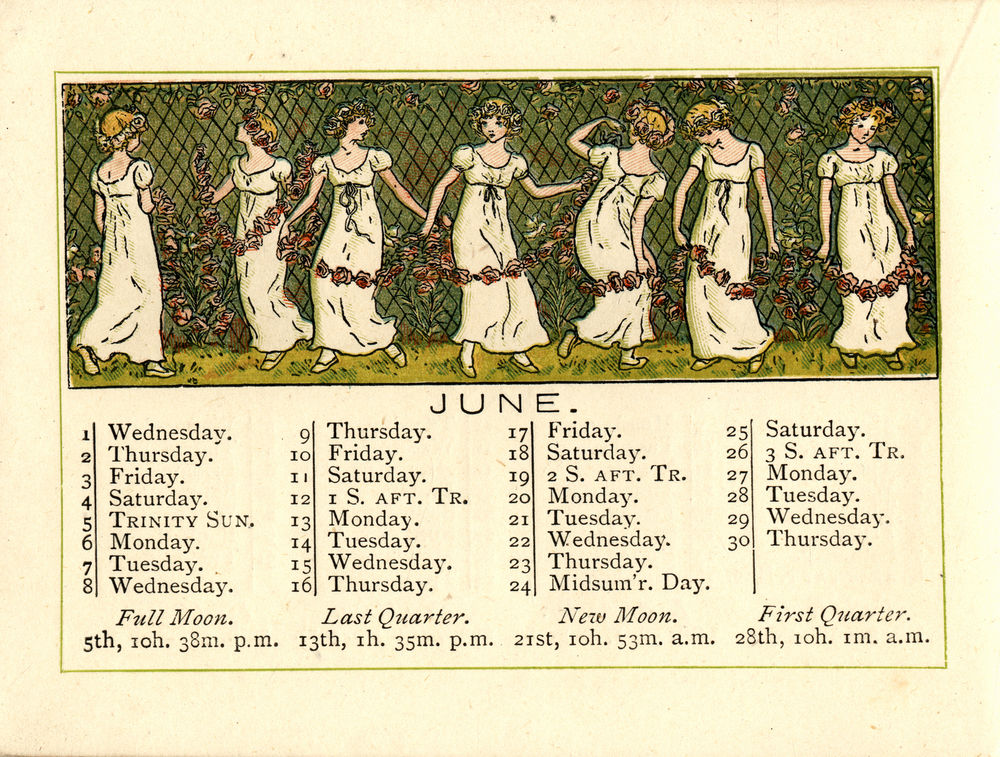 JUNE.
1 Wednesday.
2 Thursday.
3 Friday.
4 Saturday.
5 TRINITY SUN.
6 Monday.
7 Tuesday.
8 Wednesday.
9 Thursday.
10 Friday.
11 Saturday.
12 1 S. AFT. TR.
13 Monday.
14 Tuesday.
15 Wednesday.
16 Thursday.
17 Friday.
18 Saturday.
19 2 S. AFT. TR.
20 Monday.
21 Tuesday.
22 Wednesday.
23 Thursday.
24 Midsum'r. Day.
25 Saturday.
26 3 S. AFT. TR.
27 Monday.
28 Tuesday.
29 Wednesday.
30 Thursday.
Full Moon.
5th, 10h. 38m. p.m.
Last Quarter.
13th, 1h. 35m. p.m.
New Moon.
21st, 10h. 53m. a.m.
First Quarter.
28th, 10h. 1m. a.m.